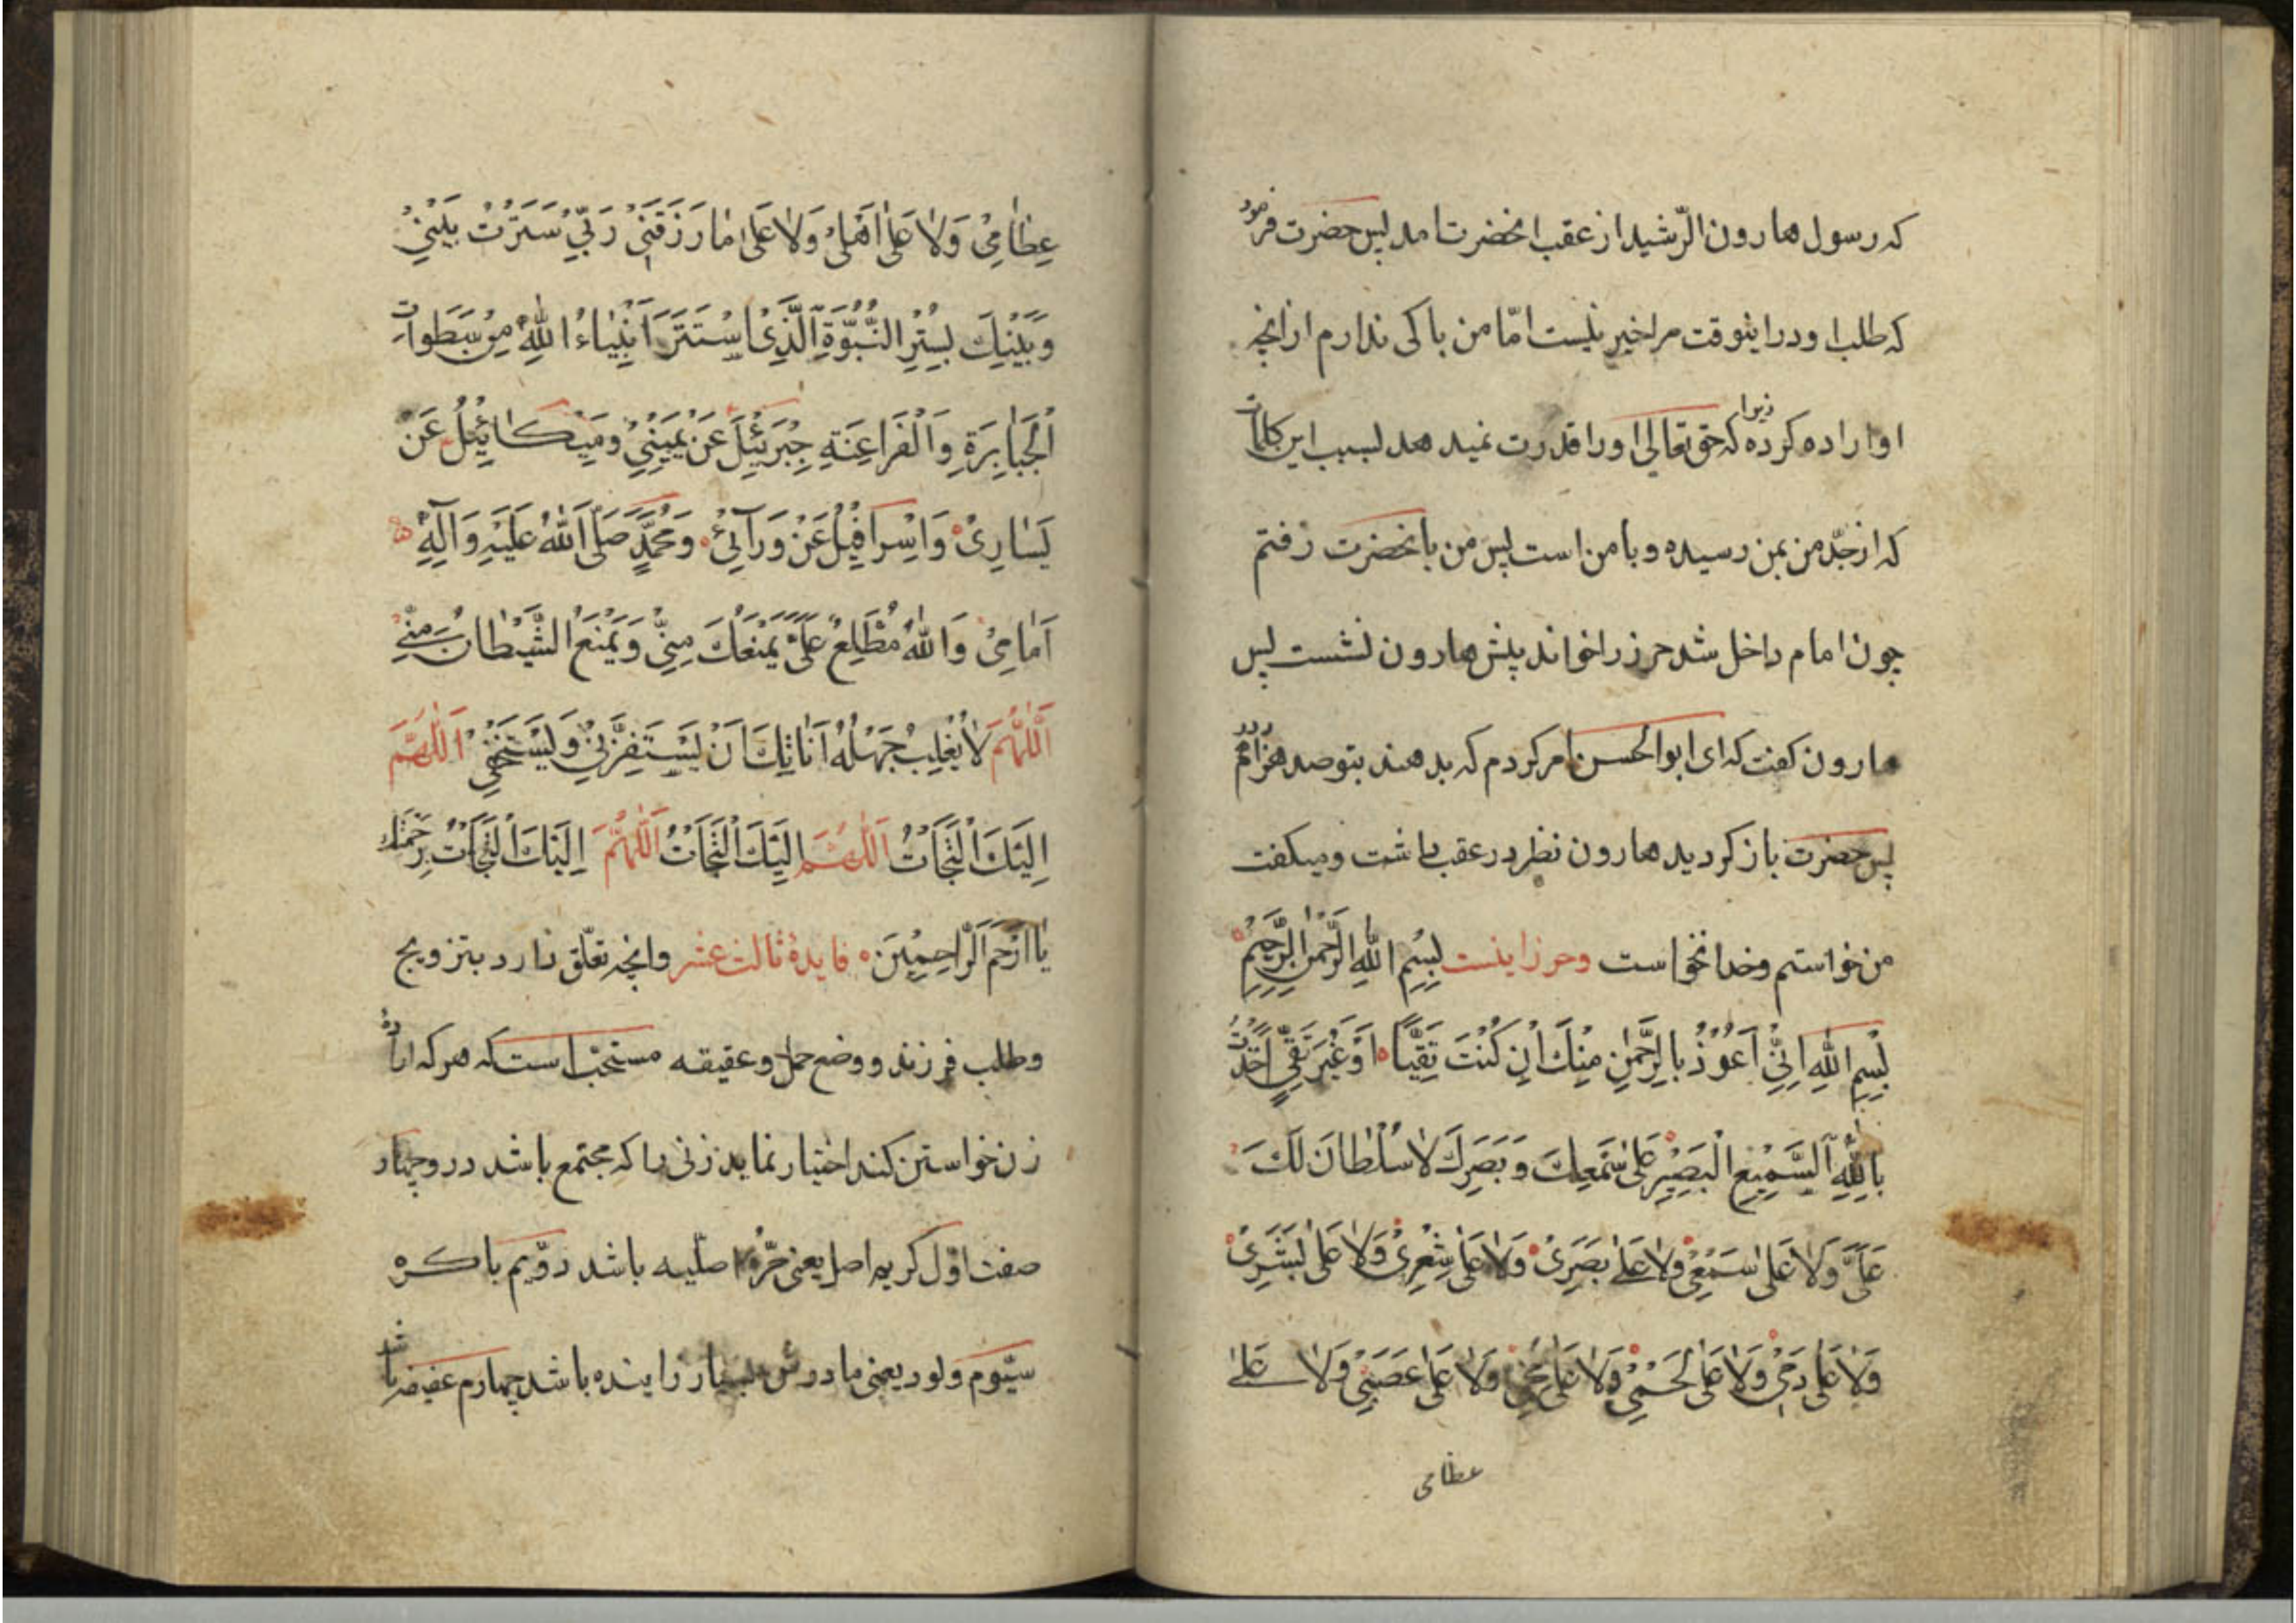 که رسول هارون الرّشید از عقب انحضرت امد پس حضرت فرمود
که طلب او در اینوقت مرا خیر نیست امّا من باکی ندارم از انچه
او اراده کرده زیرا که حق تعالی او را قدرت نمیدهد بسبب این کلمات
که از جدّ من بمن رسیده و با من است پس من با نحضرت رفتم
چون امام داخل شد حرز را خواند پیش هارون نشست پس
هارون کفت که ای ابوالحسن امر کردم که بدهند بتو صد هزار درهم
پس حضرت باز کردید هارون نظر در عقب داشت و میکفت
من خواستم و خدا نخواست وحرز اینست بِسْمِ اللهِ الرَّحْمنِ الرَّحِیْمِ
بِسْمِ اللهِ اِنِّیْ اَعُوْذُ بِالرَّحْمٰنِ مِنْكَ اِنْ کُنْتَ تَقِیًّا اَوْ غَیْرَ تَقِیٍّ اَخَذْتُ
بِاللّٰهِ السَّمِیْعِ الْبَصِیْرِ عَلٰی سَمْعِكَ وَ بَصَرِكَ لَا سُلْطَانَ لَكَ
عَلَیَّ وَلَا عَلٰی سَمْعِیْ وَلَا عَلٰی بَصَرِیْ وَلَا عَلٰی شَعْرِیْ وَلَا عَلٰی بَشَرِیْ
وَلَا عَلٰی دَمِیْ وَلَا عَلٰی لَحْمِیْ وَلَا عَلٰی مُخِّیْ وَلَا عَلٰی عَصَبِیْ وَلَا عَلٰی
عظامی
عِظَامِیْ وَلَا عَلٰی اَهْلِیْ وَلَا عَلٰی مَا رَزَقَنِیْ رَبِّیْ سَتَرْتُ بَیْنِیْ
وَبَیْنَكَ بِسِتْرِ النُّبُوَّةِ الَّذِیْ اسْتَتَرَ اَنْبِیَاءُ اللهِ مِنْ سَطَوَاتِ
الْجَبَابِرَةِ وَالْفَرَاعِنَةِ جِبْرَئِیْلُ عَنْ یَمِیْنِیْ وَمِیْکَائِیْلُ عَنْ
یَسَارِیْ وَاِسْرَافِیْلُ عَنْ وَرَآئِیْ وَمُحَمَّدٍ صَلَّی اللهُ عَلَیْهِ وَآلِهِ
اَمَامِیْ وَاللهُ مُطَّلِعٌ عَلَیَّ یَمْنَعُكَ مِنِّیْ وَیَمْنَعُ الشَّیْطَانَ مِنِّیْ
اَللّٰهُمَّ لَا یَغْلِبْ جَهْلُهُ اَنَاتَكَ اَنْ یَسْتَفِزَّنِیْ وَیَسْتَخِفَّنِیْ اَللّٰهُمَّ
اِلَیْكَ الْتَجَأْتُ اَللّٰهُمَّ اِلَیْكَ الْتَجَأْتُ اَللّٰهُمَّ اِلَیْكَ الْتَجَأْتُ بِرَحْمَتِكَ
یَا اَرْحَمَ الرَّاحِمِیْنَ فایدهٔ ثالث عشر وانچه تعلّق دارد بتزویج
وطلب فرزند و وضع حمل و عقیقه مستحبّ است که هر که ارادهٔ
زن خواستن کند اختیار نماید زنی را که مجتمع باشد در و چهار
صفت اوّل کریم اصل یعنی حرّهٔ اصلیه باشد دوّیم باکره
سیّوم ولود یعنی مادرش بسیار زاینده باشد چهارم عفیفه باشد